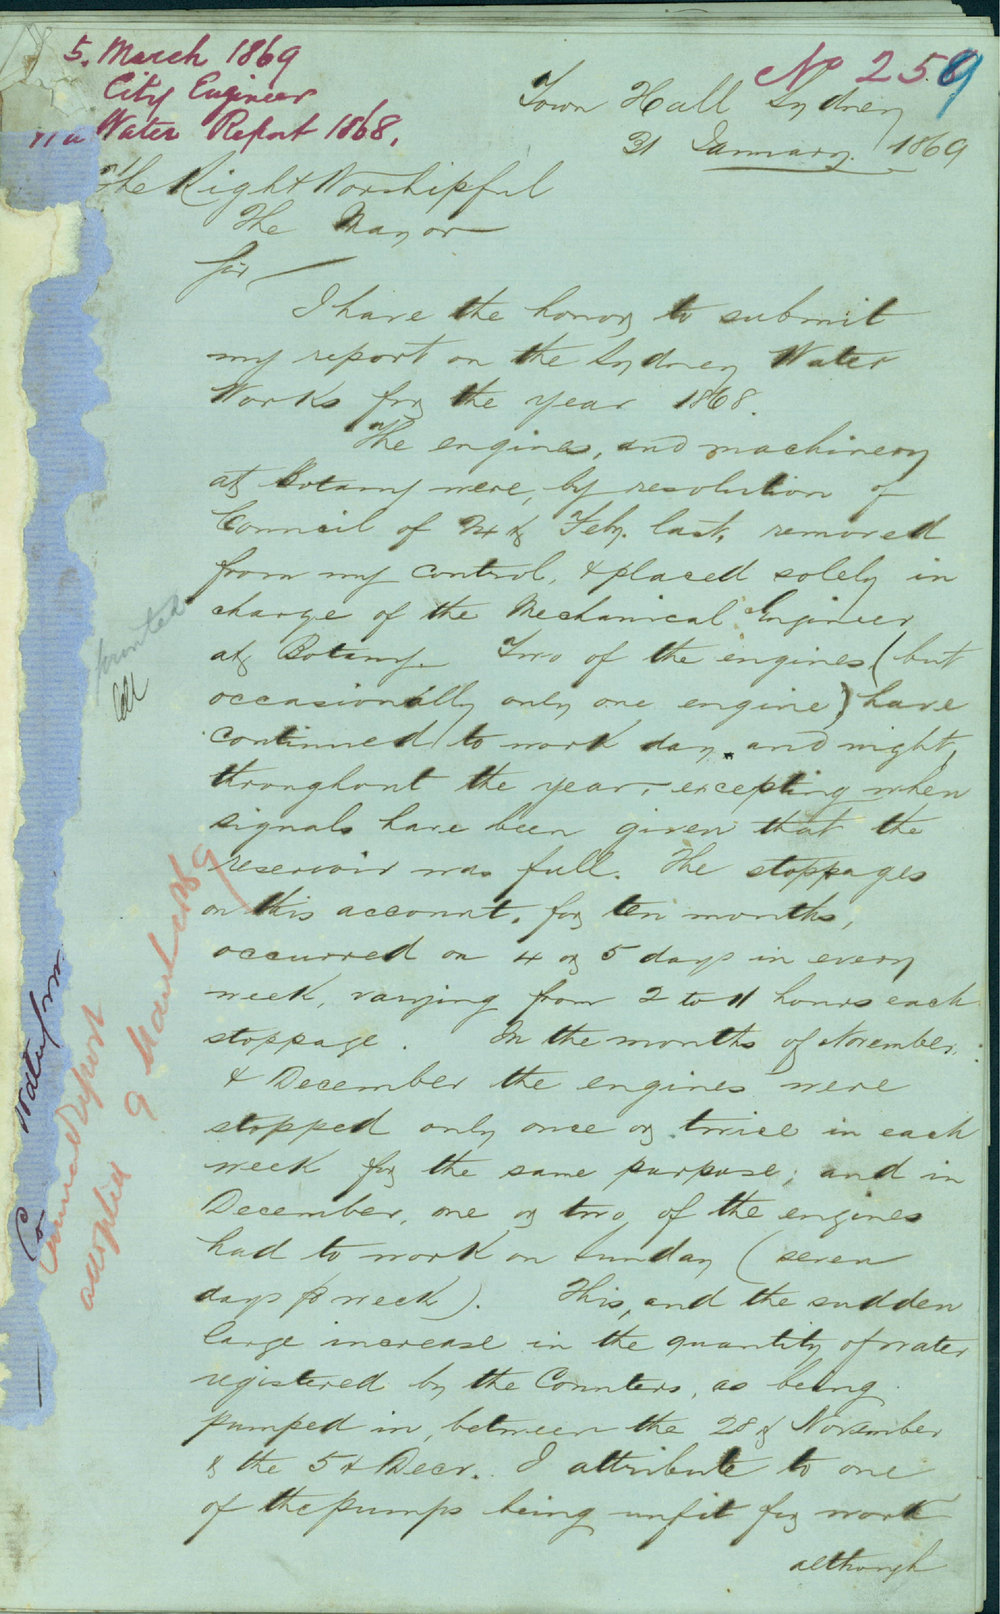 5. March 1869
City Engineer
Water Report 1868.
No 259
Town Hall Sydney
31 January 1869
The Right Worshipful
The Mayor
Sir
I have the honor to submit
my report on the Sydney Water
Works for the year 1868.
The engines, and machinery
at Botany were, by resolution of
Council of Feby. last, removed
from my control, & placed solely in
charge of the Mechanical Engineer
at Botany. Two of the engines (but
occasionally only one engine) have
continued to work day and night,
throughout the year, excepting when
signals have been given that the
reservoir was full. The stoppages
on this account, for ten months,
occurred on 4 or 5 days in every
week, varying from 2 to 11 hours each
stoppage. In the months of November
& December the engines were
stopped only once or twice in each
week for the same purpose; and in
December, one or two, of the engines
had to work on Sunday (seven
days p week). This, and the sudden
large increase in the quantity of water
registered by the Counters, as being
pumped in, between the 28th November
& the 5th Decr. I attribute to one
of the pumps being unfit for work
although
printed
Co Waterfrm
Annual Report
adopted 9 March 1869